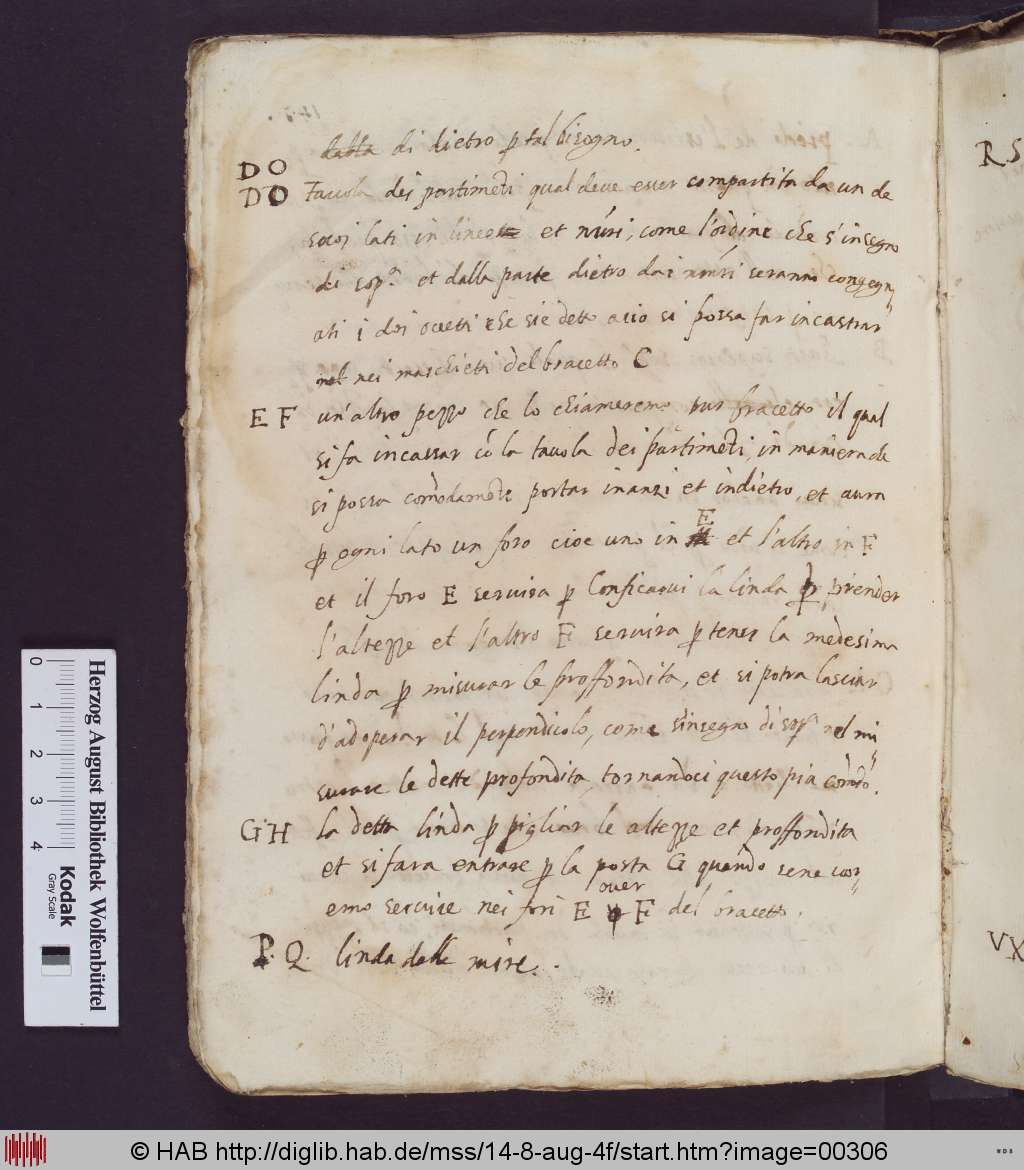 dalla di dietro p tal bisogno.
D O
D O Tavola dei partimēti qual deve esser compartita da un de
suoi lati in linee et nūri, come l'ordine che s'insegnò
di sopᵃ. et dalla parte dietro dai nūri seranno congegn
ati i doi ocetti che sie detto acio si possa far incastrar
nel nei maschietti del bracetto C
E F un'altro pezzo che lo chiameremo pur bracetto il qual
si fa incassar cō la tavola dei partimēti, in maniera che
si possa comodamēte portar inanzi et indietro, et aura
p ogni lato un foro cioe uno in E et l'altro in F
et il foro E servira p conficarvi la linda p prender
l'altezze et l'altro F servira p tener la medesima
linda p misurar le proffondita, et si potra lasciar
d'adoperar il perpendicolo, come s'insegnò di sopᵃ nel mi
surare le dette profondita, tornandoci questo piu comōdo.
G H la detta linda p pigliar le altezze et proffondita
et si fara entrare p la posta G quando sene vor
emo servire nei fori E over F del bracetto.
P. Q. linda delle mire.
R S
V X
0 1 2 3 4
Kodak
Gray Scale
Herzog August Bibliothek Wolfenbüttel
© HAB http://diglib.hab.de/mss/14-8-aug-4f/start.htm?image=00306
WDB